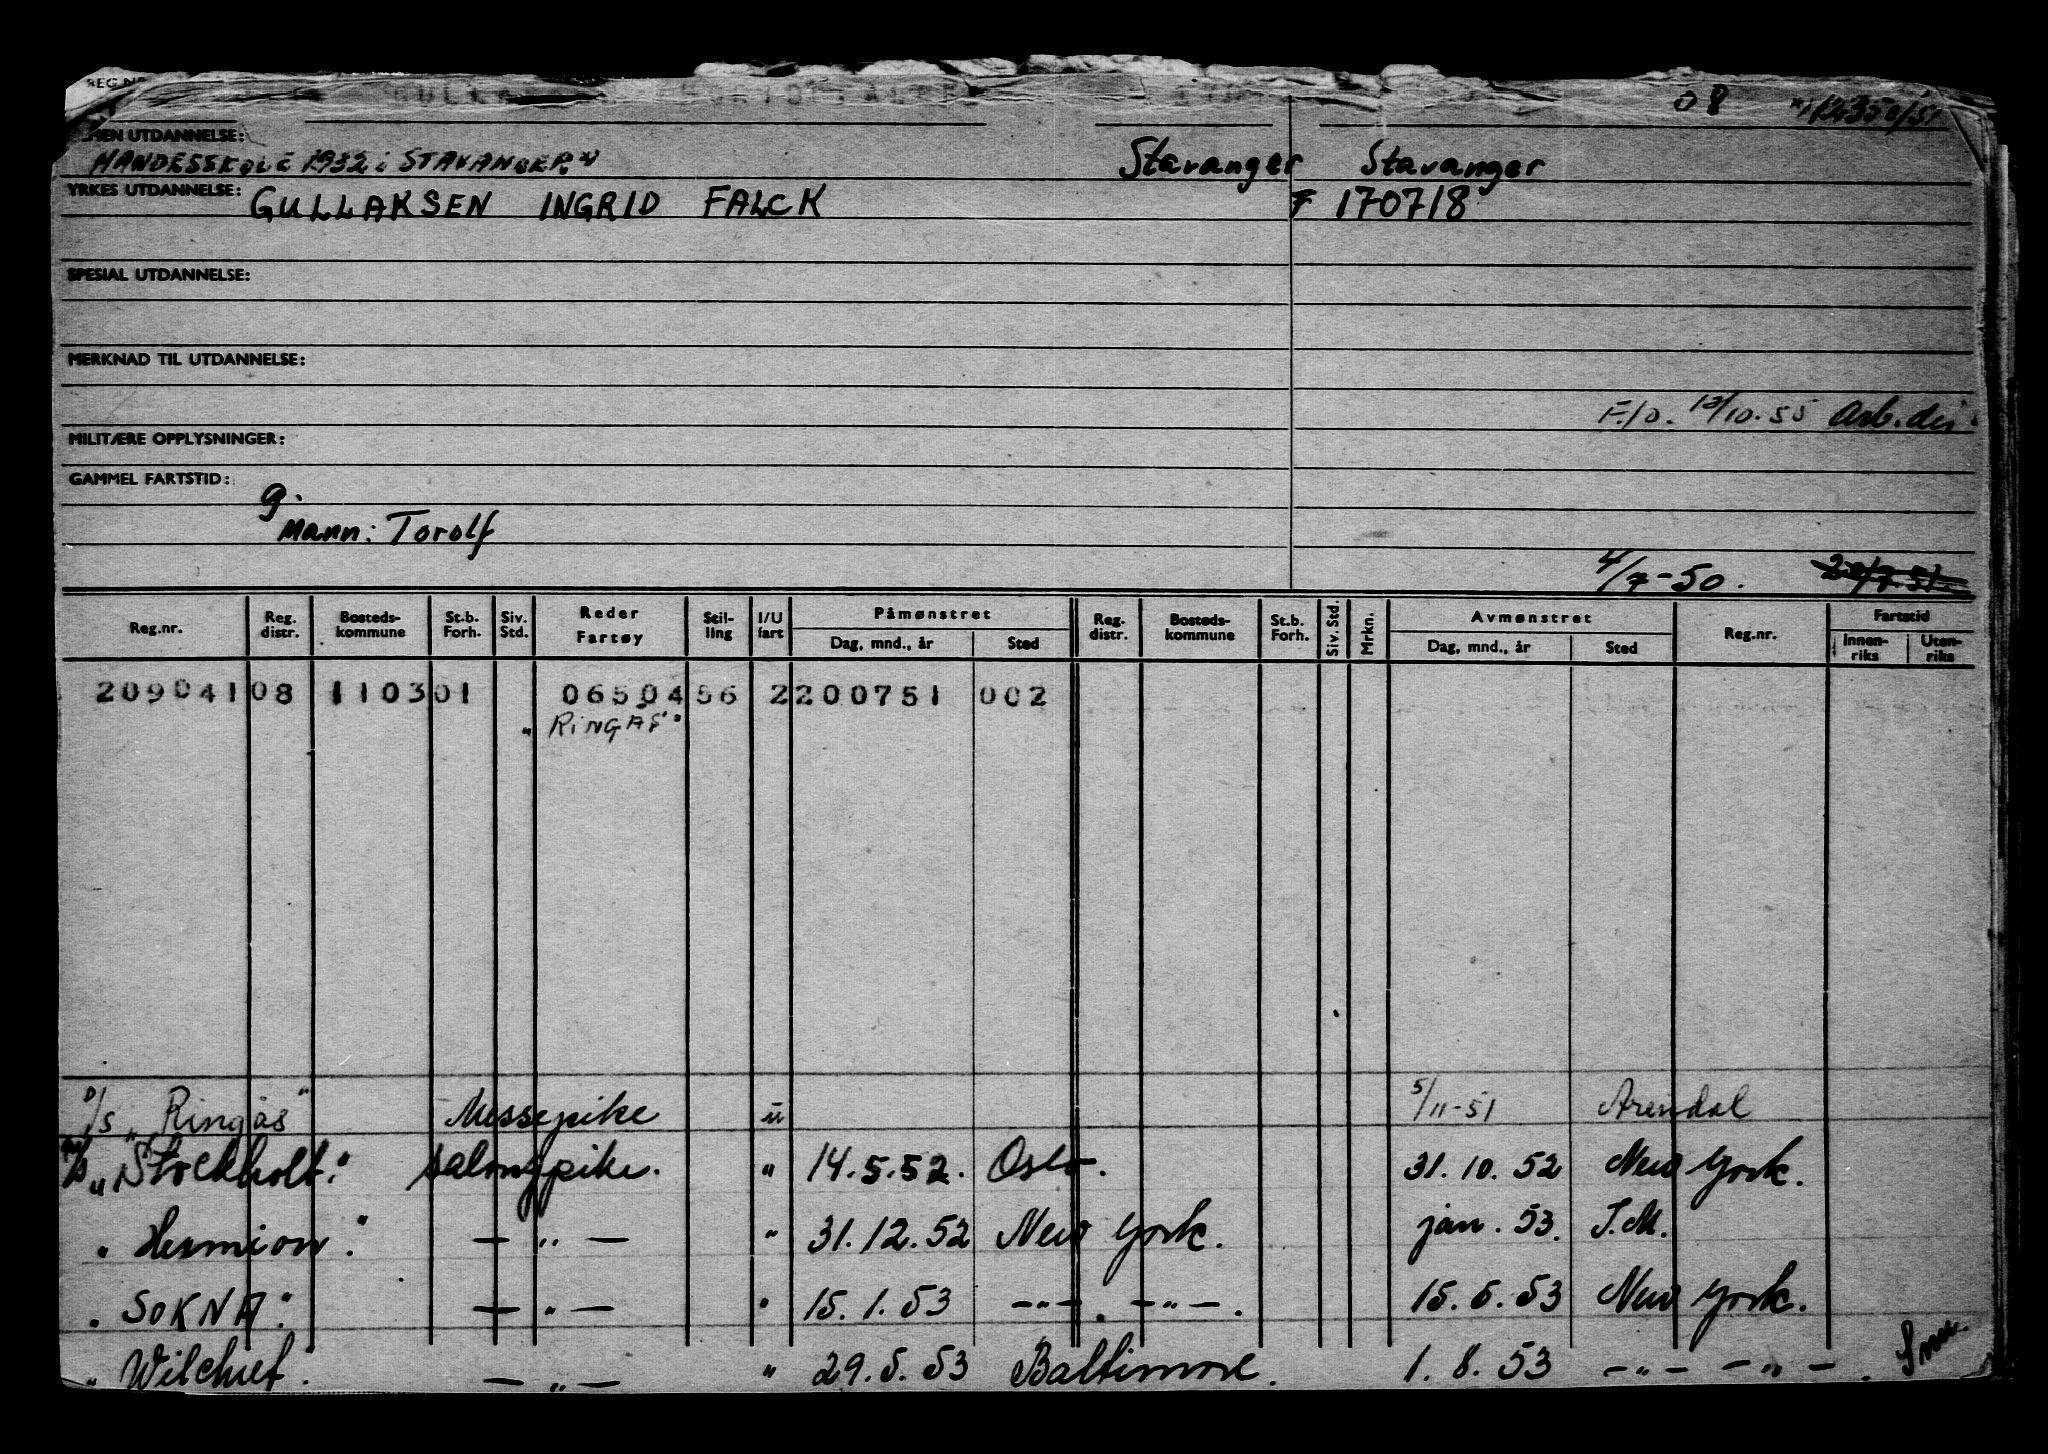 REG.NR
08
ALMEN UTDANNELSE:
HANDESSKOLE 1932 i STAVANGER. Stavanger Stavanger
YRKES UTDANNELSE: GULLAKSEN INGRID FALCK 170718
SPESIAL UTDANNELSE:
MERKNAD TIL UTDANNELSE:
F.10. 13/10.55 Arb.dir.
MILITÆRE OPPLYSNINGER:
GAMMEL FARTSTID:
g.
Mann: Torolf
4/7-50. 20/7.51.
Reg.nr. Reg. distr. Bosteds-kommune St.b. Forh. Siv. Std. Reder Fartøy Stil-ling I/U fart Påmønstret Dag, mnd., år Sted Reg. distr. Bosteds-kommune St.b. Forh. Siv. Std. Mrkn. Avmønstret Dag, mnd., år Sted Reg.nr. Fartstid Innen-riks Uten-riks
209041 08 1103 01 06504 56 2 200751 002
"RINGÅS"
D/S "Ringås" Messepike u 5/11-51 Arendal
"Stockholt." salongpike. " 14.5.52. Oslo. 31.10.52 New York.
" Hermion." — " — " 31.12.52 New York. jan. 53. S.M.
" SOKNA." — " — " 15.1.53 —"—. —"—. 15.5.53 New York.
" Wilchief. — " — " 29.5.53 Baltimore. 1.8.53 —"— —"—.